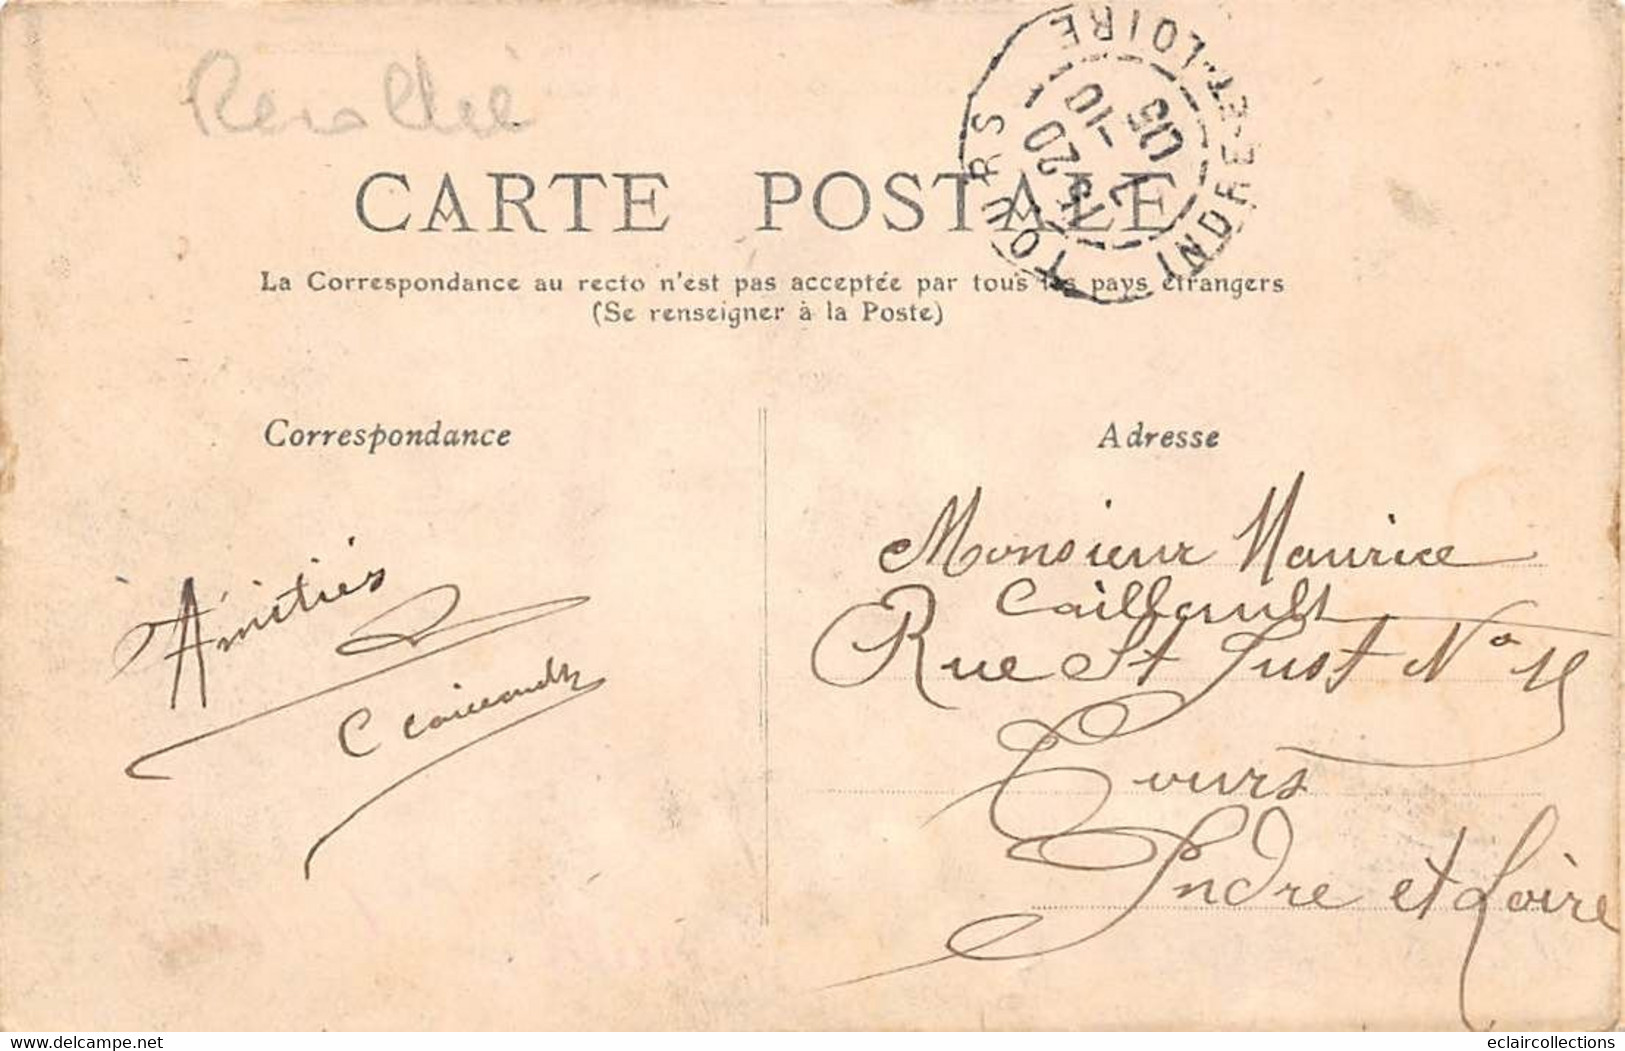 CARTE POSTALE
TOURS INDRE-ET-LOIRE
15 20
7 -10
05
La Correspondance au recto n'est pas acceptée par tous les pays étrangers
(Se renseigner à la Poste)
Correspondance
Adresse
Amitiés
Monsieur Maurice
Caillault
Rue St Just No 15
Tours
Indre et Loire
www.delcampe.net
eclaircollections